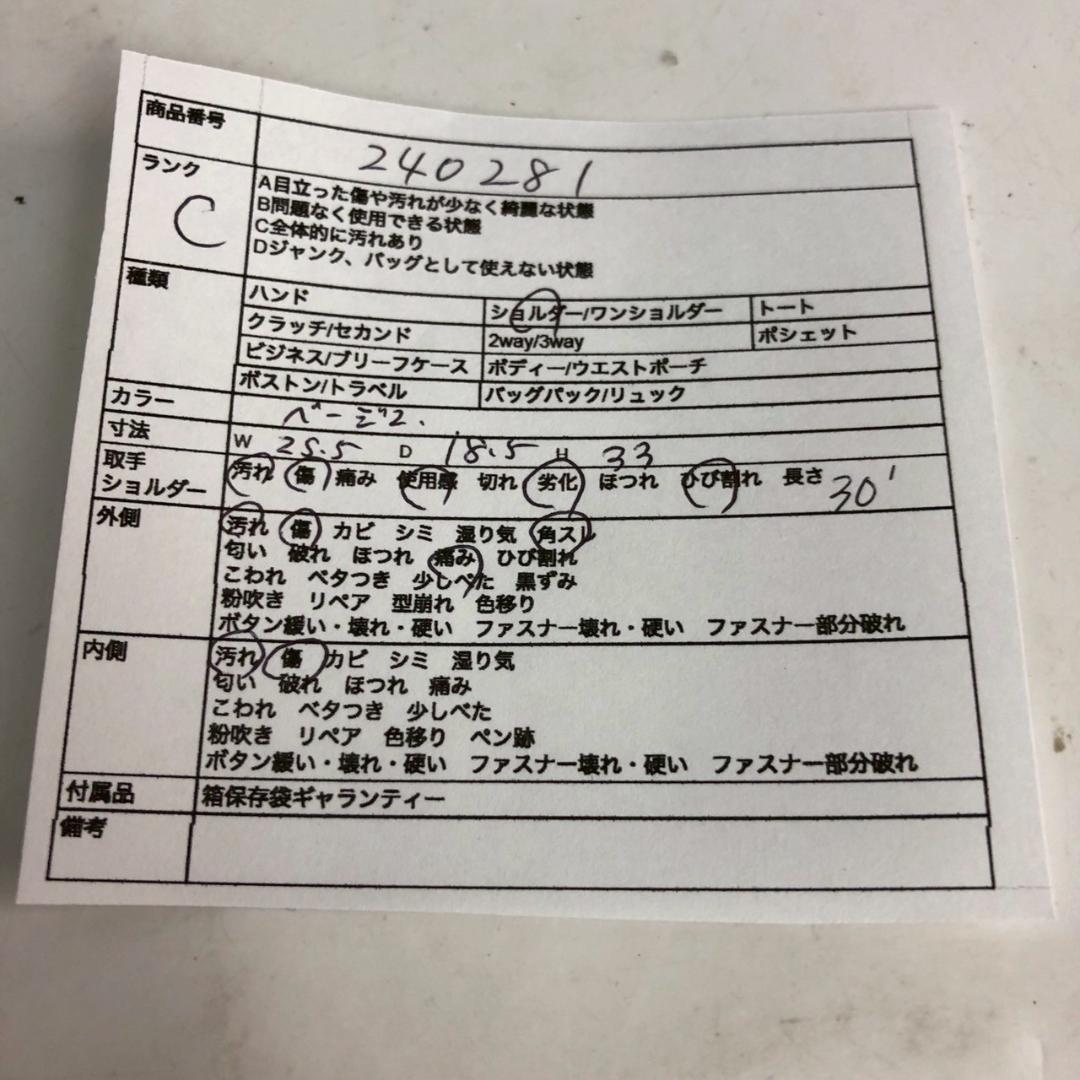 商品番号 240281
ランク C
A目立った傷や汚れが少なく綺麗な状態
B問題なく使用できる状態
C全体的に汚れあり
Dジャンク、バッグとして使えない状態
種類
ハンド ショルダー/ワンショルダー トート
クラッチ/セカンド 2way/3way ポシェット
ビジネス/ブリーフケース ボディー/ウエストポーチ
ボストン/トラベル バッグパック/リュック
カラー ベージュ.
寸法 W 25.5 D 18.5 H 33
取手
ショルダー
汚れ 傷 痛み 使用感 切れ 劣化 ほつれ ひび割れ 長さ 30
外側
汚れ 傷 カビ シミ 湿り気 角スレ
匂い 破れ ほつれ 痛み ひび割れ
こわれ ベタつき 少しべた 黒ずみ
粉吹き リペア 型崩れ 色移り
ボタン緩い・壊れ・硬い ファスナー壊れ・硬い ファスナー部分破れ
内側
汚れ 傷 カビ シミ 湿り気
匂い 破れ ほつれ 痛み
こわれ ベタつき 少しべた
粉吹き リペア 色移り ペン跡
ボタン緩い・壊れ・硬い ファスナー壊れ・硬い ファスナー部分破れ
付属品 箱保存袋ギャランティー
備考